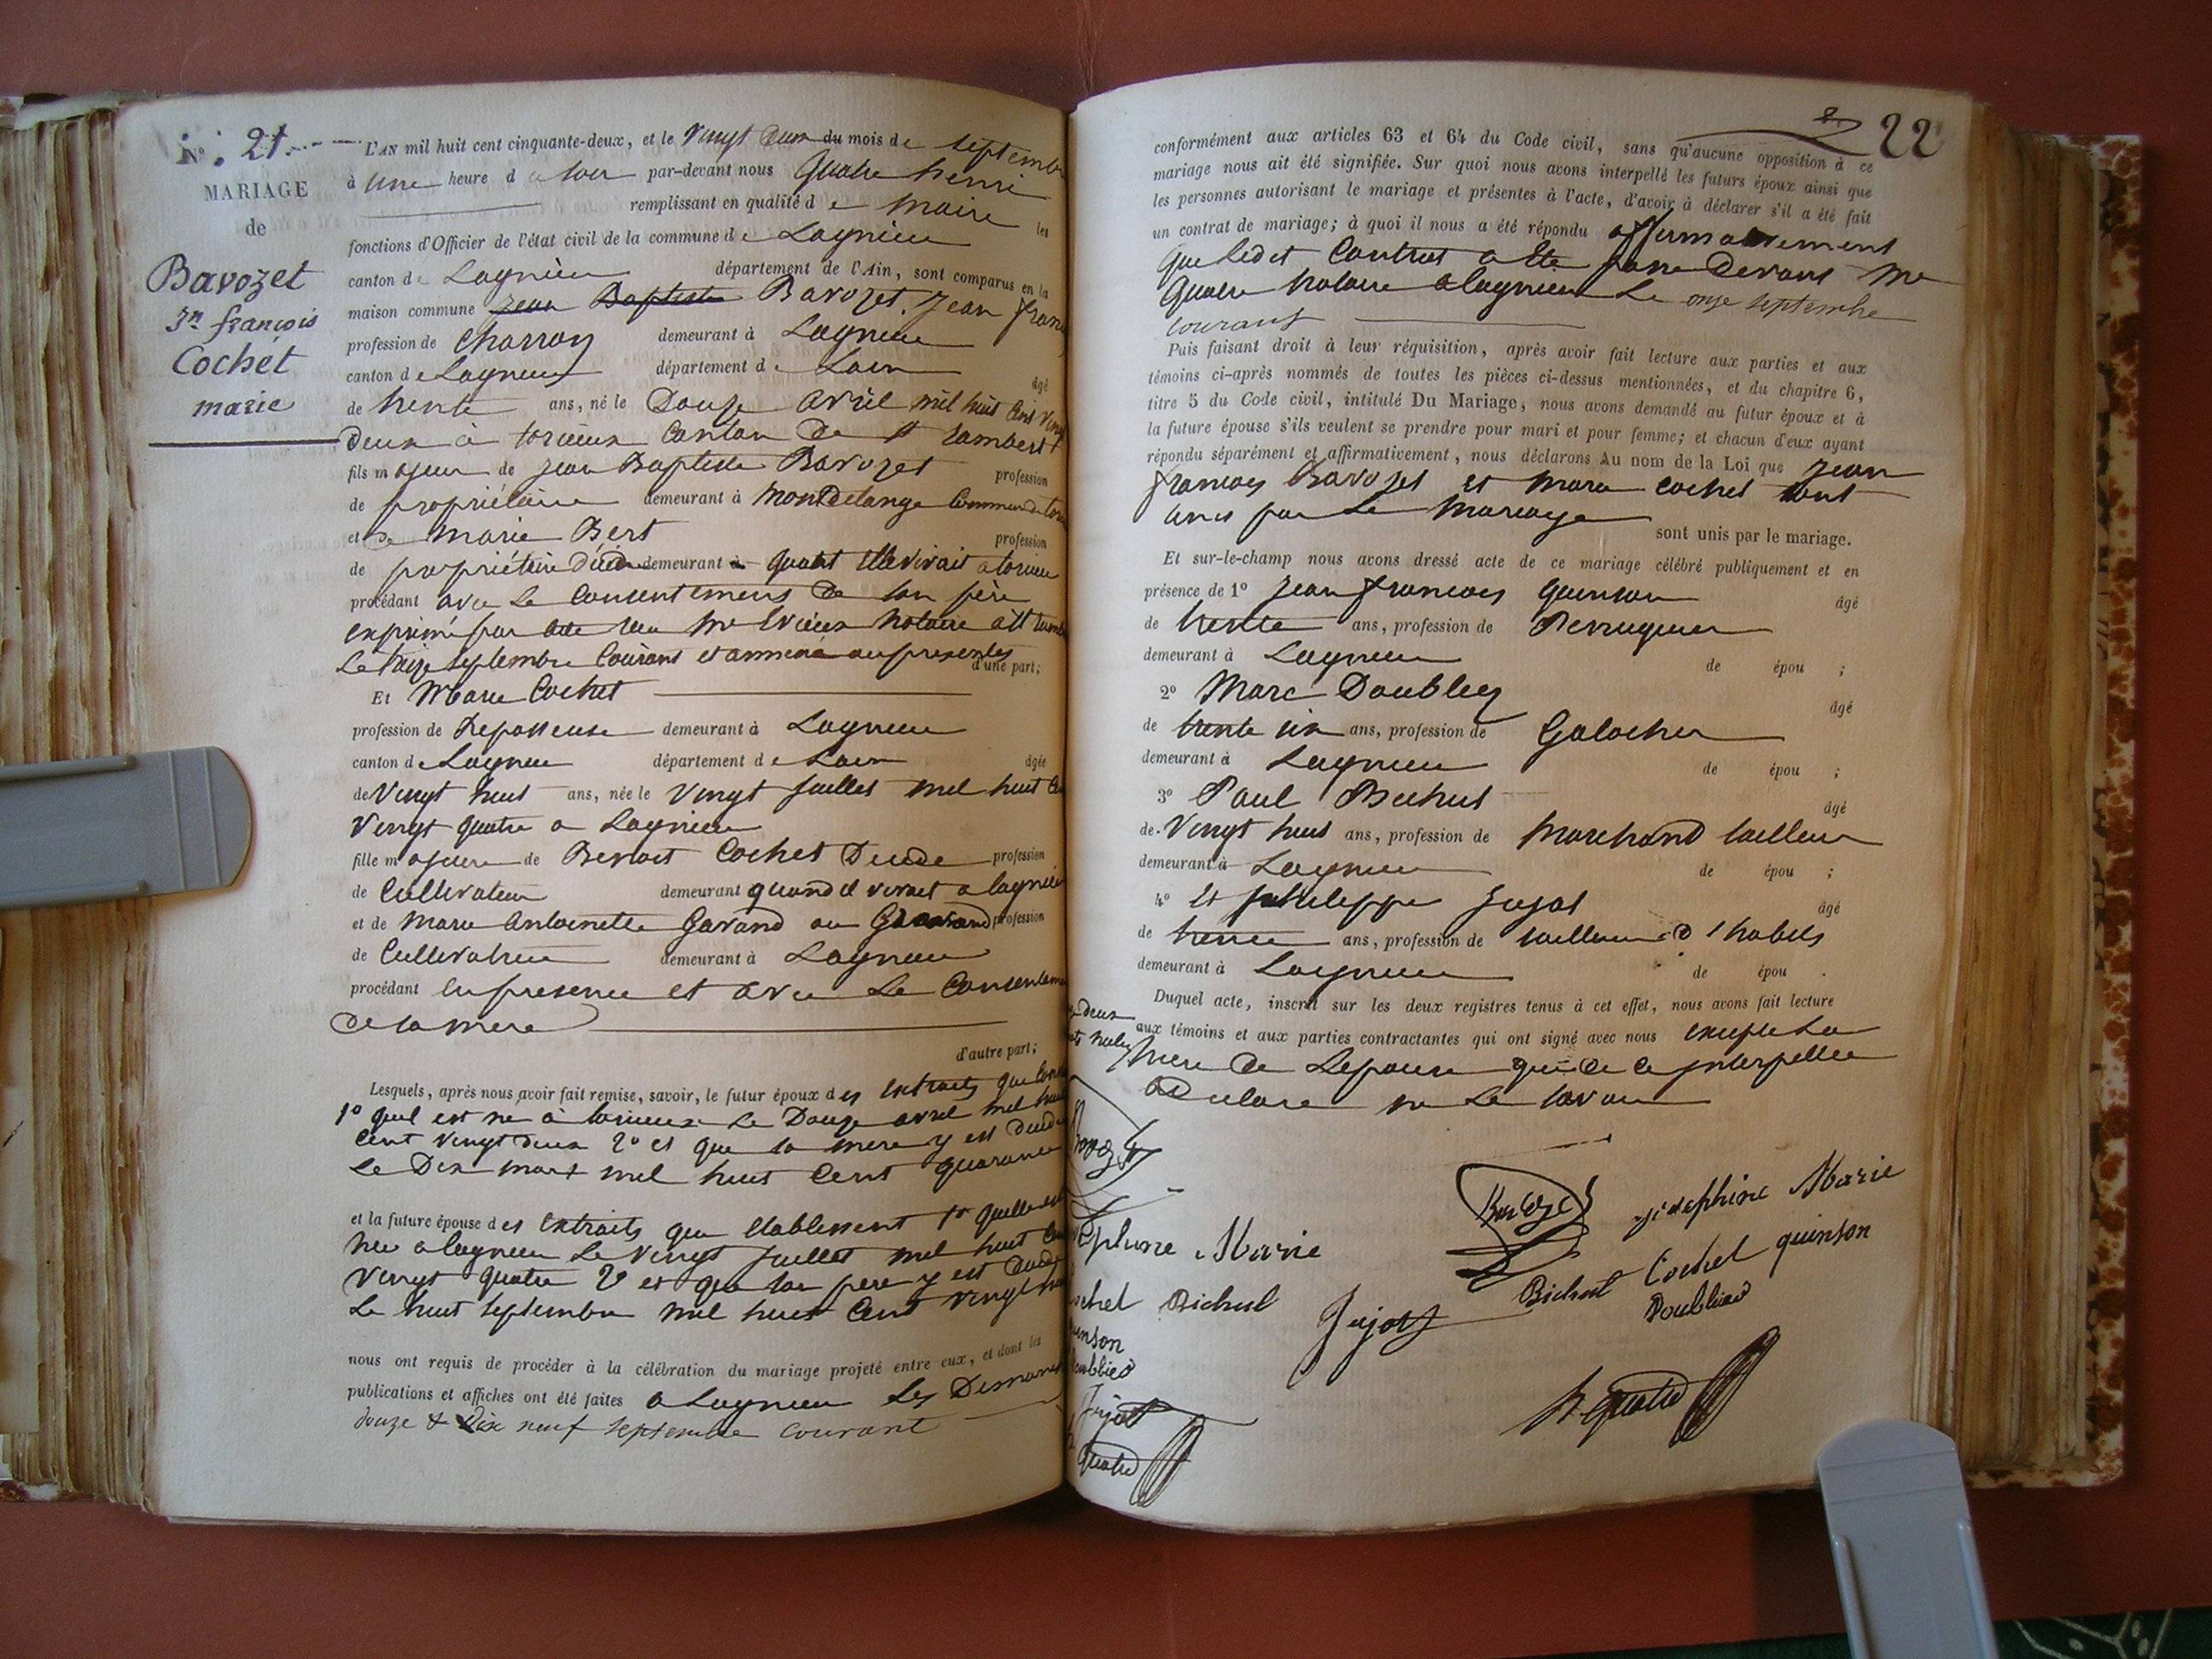 N° 21.
MARIAGE
de
Bavozet
Jn françois
Cochet
marie
L'AN mil huit cent cinquante-deux, et le Vingt deux du mois de septembre
à Une heure d u soir par-devant nous Quatre henri
remplissant en qualité d e Maire les
fonctions d'Officier de l'état civil de la commune d e Lagnieu
canton de Lagnieu département de l'Ain, sont comparus en la
maison commune Jean Baptiste Bavozet. Jean fran
profession de Charron demeurant à Lagnieu
canton de Lagnieu département de Lain âgé
de trente ans, né le Douze avril mil huit Cent Vingt
deux à torcieux Canton de st rambert
fils majeur de Jean Baptiste Bavozet profession
de propriétaire demeurant à Montdelange Commune de
et de Marie Bert profession
de propriétaire décédée demeurant à quant Elle vivait a torcieu
procédant avec Le Consentement de son père
exprimé par acte reçu Me notaire à st
Le treize septembre Courant et annexé aux presentes d'une part;
Et Marie Cochet
profession de Repasseuse demeurant à Lagnieu
canton de Lagnieu département de Lain âgée
de Vingt huit ans, née le Vingt Juillet mil huit
Vingt quatre a Lagnieu
fille majeure de Benoit Cochet Décédé profession
de Cultivateur demeurant quand il vivait a lagnieu
et de Marie Antoinette Gavand ou profession
de Cultivatrice demeurant à Lagnieu
procédant en presence et avec Le Consentem
de sa mere
d'autre part;
Lesquels, après nous avoir fait remise, savoir, le futur époux des Extraits que
1° quil est né à torcieux Le Douze avril mil huit
Cent vingt deux 2° et que sa mere y est décédée
Le Dix mars mil huit Cent quarante
et la future épouse des Extraits que Etablissent 1° quelle est
née a lagnieu Le Vingt Juillet mil huit
Vingt quatre 2° et que son pere y est Décédé
Le huit septembre mil huit Cent vingt
nous ont requis de procéder à la célébration du mariage projeté entre eux, et dont les
publications et affiches ont été faites a Lagnieu Les Dimanches
douze & Dix neuf septembre courant
22
conformément aux articles 63 et 64 du Code civil, sans qu'aucune opposition à ce
mariage nous ait été signifiée. Sur quoi nous avons interpellé les futurs époux ainsi que
les personnes autorisant le mariage et présentes à l'acte, d'avoir à déclarer s'il a été fait
un contrat de mariage; à quoi il nous a été répondu affirmativement
que Ledit Contrat a Eté passé Devant Me
Quatre Notaire a Lagnieu Le onze septembre
courant
Puis faisant droit à leur réquisition, après avoir fait lecture aux parties et aux
témoins ci-après nommés de toutes les pièces ci-dessus mentionnées, et du chapitre 6,
titre 5 du Code civil, intitulé Du Mariage, nous avons demandé au futur époux et à
la future épouse s'ils veulent se prendre pour mari et pour femme; et chacun d'eux ayant
répondu séparément et affirmativement, nous déclarons Au nom de la Loi que Jean
françois Bavozet et Marie Cochet sont
unis par Le Mariage sont unis par le mariage.
Et sur-le-champ nous avons dressé acte de ce mariage célébré publiquement et en
présence de 1° Jean françois Quinson âgé
de trente ans, profession de Perruquier
demeurant à Lagnieu de épou ;
2° Marc Doublier âgé
de trente six ans, profession de Galocher
demeurant à Lagnieu de épou ;
3° Paul Bichut âgé
de Vingt huit ans, profession de Marchand tailleur
demeurant à Lagnieu de épou ;
4° Et philippe Jujat âgé
de trente ans, profession de tailleur d'habits
demeurant à Lagnieu de épou .
Duquel acte, inscrit sur les deux registres tenus à cet effet, nous avons fait lecture
aux témoins et aux parties contractantes qui ont signé avec nous excepté La
Mere de Lepouse qui de ce Interpellée
a Declaré ne Le savoir
Bavozet josephine Marie
Cochet quinson
Bichut Doublier
Jujat
h. Quatre
Marie
Bichut
Jujat
Quatre